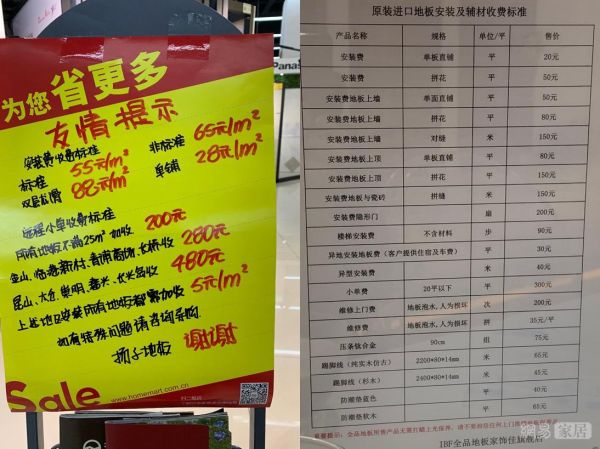 为您省更多
友情提示
安装费收费标准
标准 55元/m² 非标准 65元/m²
双层龙骨 88元/m² 单铺 28元/m²
远程小单收费标准
所有地板不满25m²加收 200元
金山、临港新村、青浦商榻、长桥收 280元
昆山、太仓、崇明、嘉兴、长兴岛收 480元
上述地区安装所有地板都需加收 5元/m²
如有特殊问题请咨询导购
扬子地板 谢谢
Sale
www.homemart.com.cn
Panas
原装进口地板安装及辅材收费标准
产品名称 规格 单位/平 售价
安装费 单板直铺 平 20元
安装费 拼花 平 50元
安装费地板上墙 单面直铺 平 50元
安装费地板上墙 拼花 平 80元
安装费地板上墙 对缝 米 150元
安装费地板上顶 单板直铺 平 80元
安装费地板上顶 拼花 平 150元
安装费地板与瓷砖 拼缝 米 150元
安装费隐形门 扇 200元
楼梯安装费 不含材料 步 90元
异地安装地板费(客户提供住宿及车费) 平 30元
异型安装费 米 40元
小单费 20平以下 平 300元
维修上门费 地板泡水,人为损坏 次 200元
维修费 地板泡水,人为损坏 拼 35元/平
压条钛合金 90cm 组 75元
踢脚线(纯实木仿古) 2200*80*14mm 米 65元
踢脚线(杉木) 2400*80*14mm 米 45元
防潮垫蓝色 平 40元
防潮垫软木 平 65元
IBF全品地板家饰佳旗舰店
網易家居